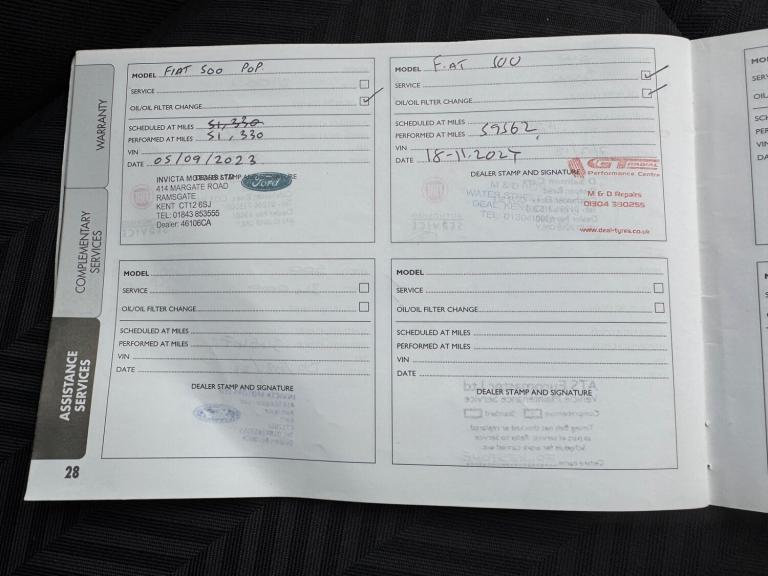 WARRANTY
COMPLEMENTARY
SERVICES
ASSISTANCE
SERVICES
28
MODEL FIAT 500 POP
SERVICE
OIL/OIL FILTER CHANGE
SCHEDULED AT MILES 51,330
PERFORMED AT MILES 51,330
VIN
DATE 05/09/2023
DEALER STAMP AND SIGNATURE
INVICTA MOTORS LTD
414 MARGATE ROAD
RAMSGATE
KENT CT12 6SJ
TEL: 01843 853555
Dealer: 46106CA
Ford
MODEL FIAT 500
SERVICE
OIL/OIL FILTER CHANGE
SCHEDULED AT MILES
PERFORMED AT MILES 59562
VIN
DATE 18-11.2024
DEALER STAMP AND SIGNATURE
GT RADIAL
Performance Centre
M & D Repairs
01304 380255
www.deal-tyres.co.uk
MODEL
SERVICE
OIL/OIL FILTER CHANGE
SCHEDULED AT MILES
PERFORMED AT MILES
VIN
DATE
DEALER STAMP AND SIGNATURE
MODEL
SERVICE
OIL/OIL FILTER CHANGE
SCHEDULED AT MILES
PERFORMED AT MILES
VIN
DATE
DEALER STAMP AND SIGNATURE